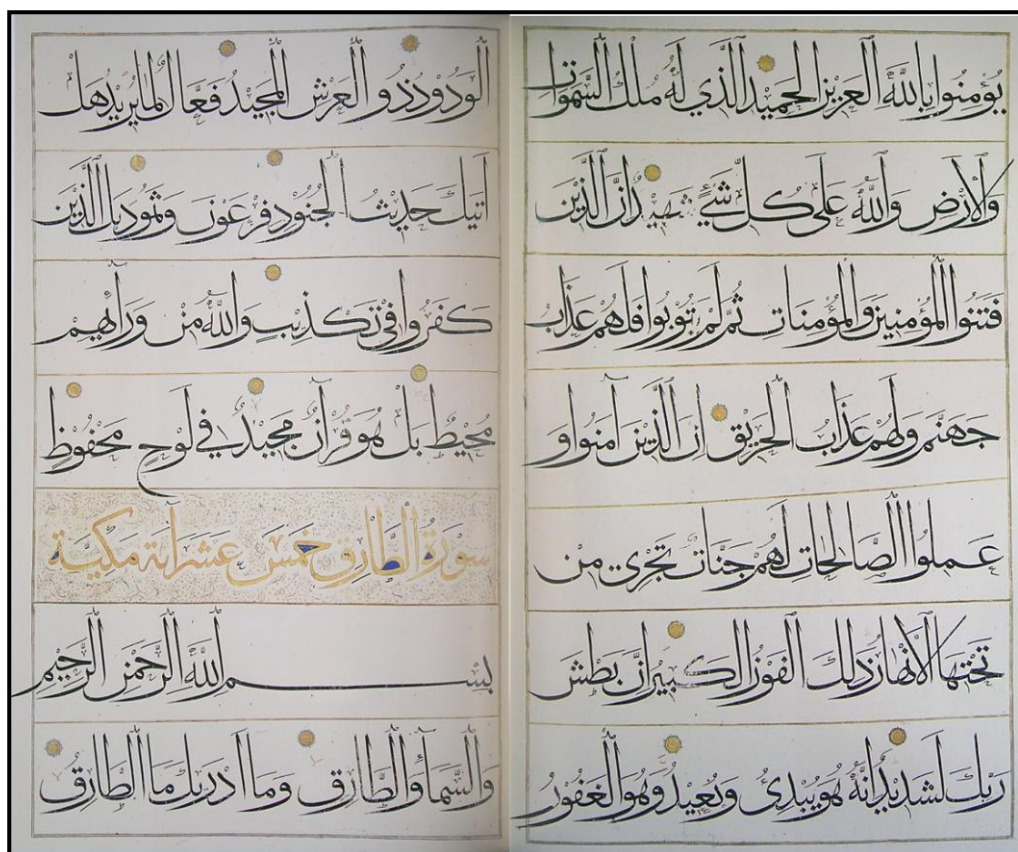 يُؤْمِنُوا بِاللَّهِ الْعَزِيزِ الْحَمِيدِ الَّذِي لَهُ مُلْكُ السَّمٰوَاتِ
وَالْاَرْضِ وَاللَّهُ عَلٰى كُلِّ شَيْءٍ شَهِيدٌ اِنَّ الَّذِينَ
فَتَنُوا الْمُؤْمِنِينَ وَالْمُؤْمِنَاتِ ثُمَّ لَمْ يَتُوبُوا فَلَهُمْ عَذَابُ
جَهَنَّمَ وَلَهُمْ عَذَابُ الْحَرِيقِ اِنَّ الَّذِينَ آمَنُوا وَ
عَمِلُوا الصَّالِحَاتِ لَهُمْ جَنَّاتٌ تَجْرِي مِنْ
تَحْتِهَا الْاَنْهَارُ ذٰلِكَ الْفَوْزُ الْكَبِيرُ اِنَّ بَطْشَ
رَبِّكَ لَشَدِيدٌ اِنَّهُ هُوَ يُبْدِئُ وَيُعِيدُ وَهُوَ الْغَفُورُ
الْوَدُودُ ذُو الْعَرْشِ الْمَجِيدُ فَعَّالٌ لِمَا يُرِيدُ هَلْ
اَتٰيكَ حَدِيثُ الْجُنُودِ فِرْعَوْنَ وَثَمُودَ بَلِ الَّذِينَ
كَفَرُوا فِي تَكْذِيبٍ وَاللَّهُ مِنْ وَرَائِهِمْ
مُحِيطٌ بَلْ هُوَ قُرْآنٌ مَجِيدٌ فِي لَوْحٍ مَحْفُوظٍ
سُورَةُ الطَّارِقِ خَمْسَ عَشَرَ آيَة مَكِّيَّة
بِسْمِ اللَّهِ الرَّحْمٰنِ الرَّحِيمِ
وَالسَّمَاءِ وَالطَّارِقِ وَمَا اَدْرٰيكَ مَا الطَّارِقُ